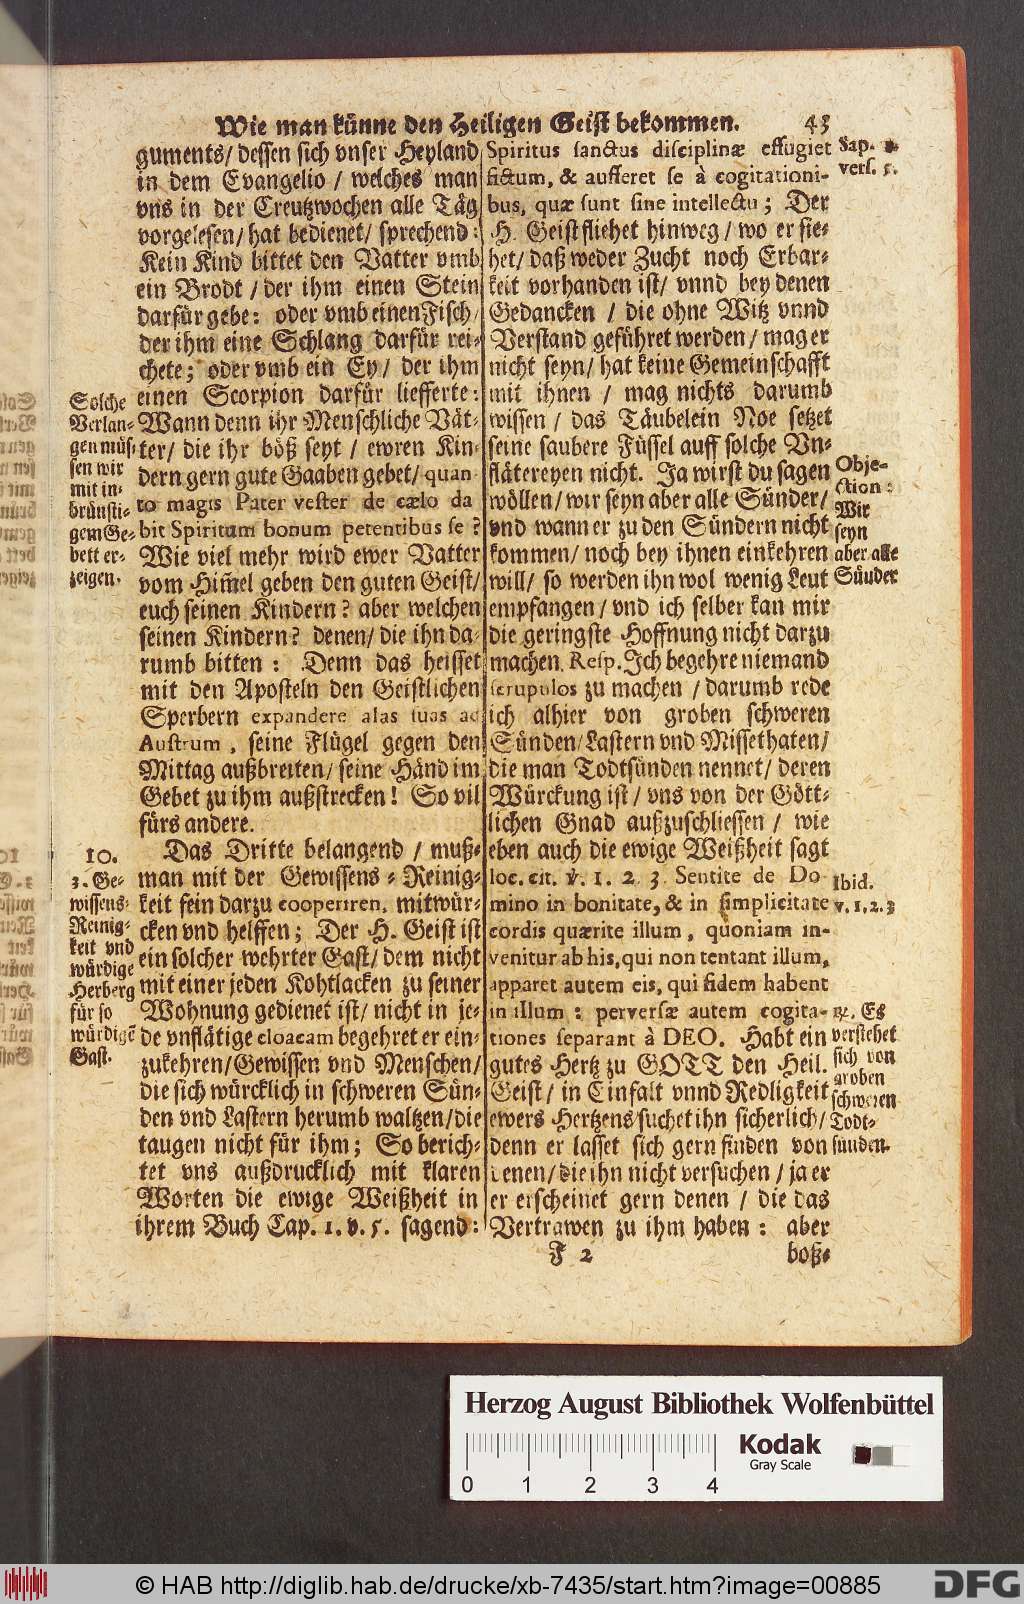 Wie man künne den Heiligen Geist bekommen. 43
guments/ dessen sich vnser Heyland
in dem Evangelio / welches man
vns in der Creutzwochen alle Täg
vorgelesen/ hat bedienet/ sprechend:
Kein Kind bittet den Vatter vmb
ein Brodt / der ihm einen Stein
darfür gebe: oder vmb einen Fisch/
der ihm eine Schlang darfür rei-
chete; oder vmb ein Ey/ der ihm
einen Scorpion darfür liefferte:
Wann denn ihr Menschliche Vät-
ter/ die ihr böß seyt / ewren Kin-
dern gern gute Gaaben gebet/ quan-
to magis Pater vester de cælo da
bit Spiritum bonum petentibus se?
Wie viel mehr wird ewer Vatter
vom Him̃el geben den guten Geist/
euch seinen Kindern? aber welchen
seinen Kindern? denen/ die ihn da-
rumb bitten: Denn das heisset
mit den Aposteln den Geistlichen
Sperbern expandere alas suas ad
Austrum, seine Flügel gegen den
Mittag außbreiten/ seine Händ im
Gebet zu ihm außstrecken! So vil
fürs andere.
Das Dritte belangend / muß
man mit der Gewissens-Reinig-
keit fein darzu cooperiren, mitwür-
cken vnd helffen; Der H. Geist ist
ein solcher wehrter Gast/ dem nicht
mit einer jeden Kohtlacken zu seiner
Wohnung gedienet ist/ nicht in je-
de vnflätige cloacam begehret er ein-
zukehren/ Gewissen vnd Menschen/
die sich würcklich in schweren Sün-
den vnd Lastern herumb waltzen/ die
taugen nicht für ihm; So berich-
tet vns außdrucklich mit klaren
Worten die ewige Weißheit in
ihrem Buch Cap. 1. v. 5. sagend:
Solche
Verlan-
gen müs-
sen wir
mit in-
brünsti-
gem Ge-
bett er-
zeigen.
10.
3. Ge-
wissens-
Reinig-
keit vnd
würdige
Herberg
für so
würdigẽ
Gast.
Spiritus sanctus disciplinæ effugiet
fictum, & aufferet se à cogitationi-
bus, quæ sunt sine intellectu; Der
H. Geist fliehet hinweg/ wo er sie-
het/ daß weder Zucht noch Erbar-
keit vorhanden ist/ vnnd bey denen
Gedancken / die ohne Witz vnnd
Verstand geführet werden/ mag er
nicht seyn/ hat keine Gemeinschafft
mit ihnen / mag nichts darumb
wissen / das Täubelein Noe setzet
seine saubere Füssel auff solche Vn-
flätereyen nicht. Ja wirst du sagen
wöllen/ wir seyn aber alle Sünder/
vnd wann er zu den Sündern nicht
kommen/ noch bey ihnen einkehren
will/ so werden ihn wol wenig Leut
empfangen/ vnd ich selber kan mir
die geringste Hoffnung nicht darzu
machen. Resp. Ich begehre niemand
scrupulos zu machen / darumb rede
ich alhier von groben schweren
Sünden/ Lastern vnd Missethaten/
die man Todtsünden nennet/ deren
Würckung ist/ vns von der Gött-
lichen Gnad außzuschliessen / wie
eben auch die ewige Weißheit sagt
loc. cit. v. 1. 2. 3. Sentite de Do-
mino in bonitate, & in simplicitate
cordis quærite illum, quoniam in-
venitur ab his, qui non tentant illum,
apparet autem eis, qui fidem habent
in illum: perversæ autem cogita-
tiones separant à DEO. Habt ein
gutes Hertz zu GOTT den Heil.
Geist/ in Einfalt vnnd Redligkeit
ewers Hertzens/ suchet ihn sicherlich/
denn er lasset sich gern finden von
denen/ die ihn nicht versuchen / ja er
er erscheinet gern denen / die das
Vertrawen zu ihm haben: aber
F 2 boß-
Sap. 1.
vers. 5.
Obje-
ction:
Wir
seyn
aber alle
Sünder
Ibid.
v. 1, 2. 3
12. Es
verstehet
sich von
groben
schweren
Todt-
sünden.
Herzog August Bibliothek Wolfenbüttel
Kodak
Gray Scale
0 1 2 3 4
© HAB http://diglib.hab.de/drucke/xb-7435/start.htm?image=00885
DFG